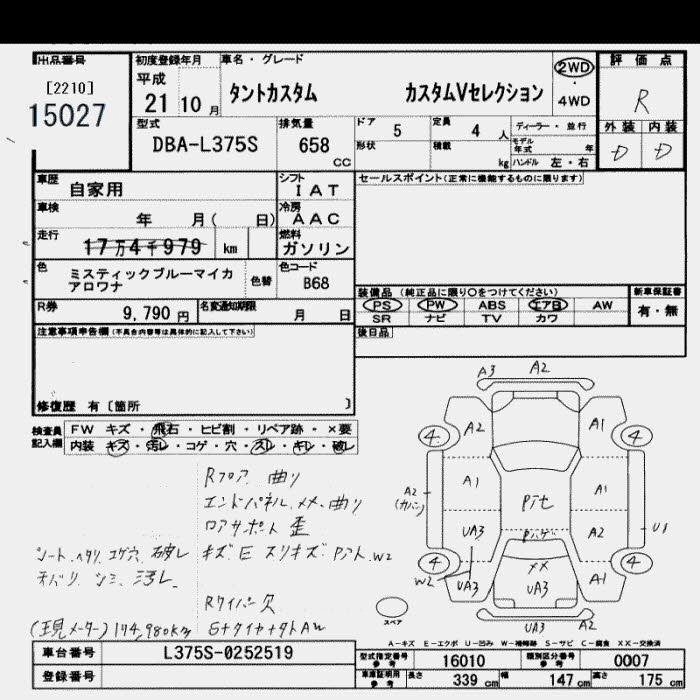 出品番号
[2210]
15027
初度登録年月
平成
21 10 月
車名・グレード
タントカスタム カスタムVセレクション
2WD
・
4WD
評価点
R
外装 内装
D D
型式
DBA-L375S
排気量
658
CC
ドア 5
定員 4 人
ディーラー・並行
形状
積載 kg
モデル年式 年
ハンドル 左・右
車歴
自家用
シフト
IAT
セールスポイント(正常に機能するものに限ります)
車検
年 月( 日)
冷房
AAC
走行
17万4千979 km
燃料
ガソリン
色
ミスティックブルーマイカ
アロワナ
色替
色コード
B68
装備品 (純正品に限り○をつけてください)
PS PW ABS エアB AW
SR ナビ TV カワ
新車保証書
有・無
R券
9,790 円
名変通知期限
月 日
後日品
注意事項申告欄(不具合内容等は具体的に記入して下さい)
修復歴 有〔箇所 〕
検査員
記入欄
FW キズ・飛石・ヒビ割・リペア跡・×要
内装 キズ・汚レ・コゲ・穴・スレ・キレ・破レ
Rフロア 曲り
エンドパネル メメ 曲り
ロアサポート 歪
シート ヘタリ コゲ穴 破レ
キズ E スリキズ Pアト W2
ネバリ シミ 汚レ
Rワイパー欠
(現メーター) 174,980km
A3 A2
4 A2 A1 4
A1 A1
A2
(カバン)
Pセ
UA3 A2 U1
Pハゲ
4 メメ 4
W2 UA3 UA3 A1
スペア
UA3 A2
A-キズ E-エクボ U-凹み W-補修跡 S-サビ C-腐食 XX-交換済
車台番号
L375S-0252519
登録番号
型式指定番号
参考
16010
類別区分番号
参考
0007
車庫証明用
参考
長さ 339 cm
幅 147 cm
高さ 175 cm